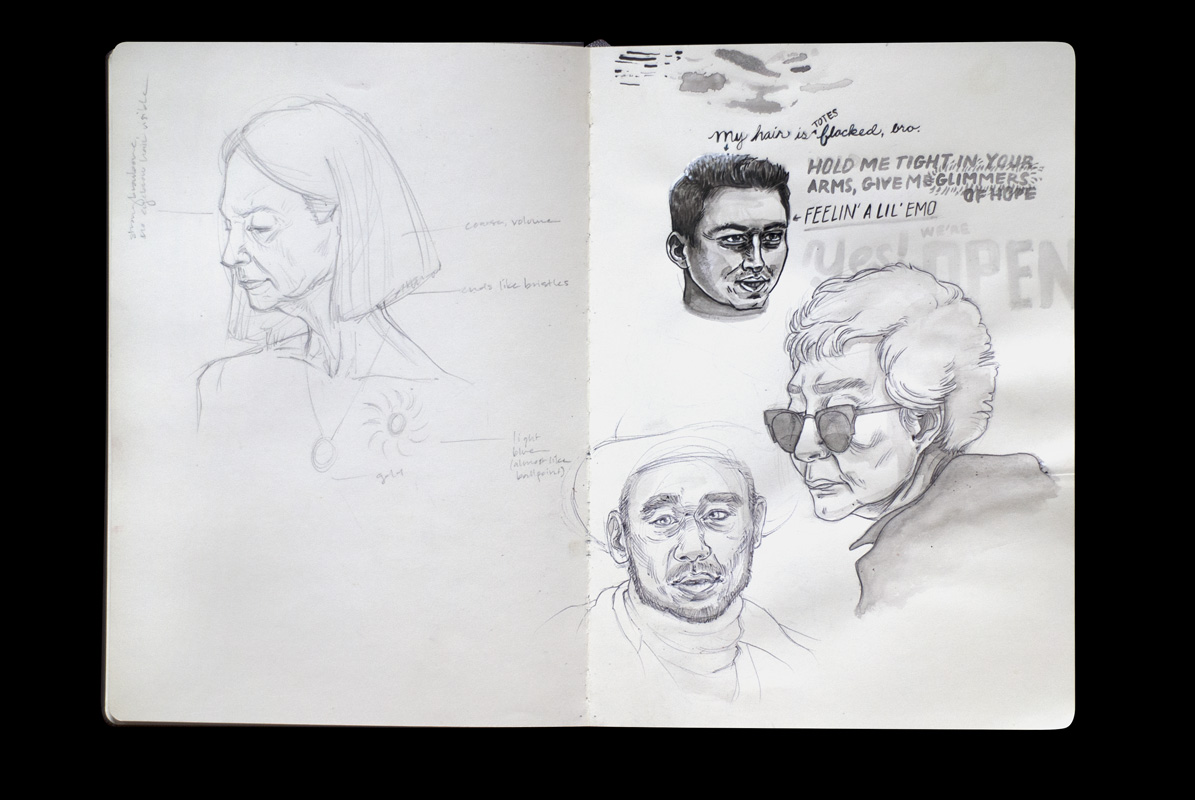 strong browbone,
no eyebrow hair visible
coarse, volume
ends like bristles
light
blue
(almost like
ballpoint)
gold
my hair is TOTES flocked, bro.
HOLD ME TIGHT IN YOUR
ARMS, GIVE ME GLIMMERS
OF HOPE
FEELIN' A LIL' EMO
Yes! WE'RE
OPEN